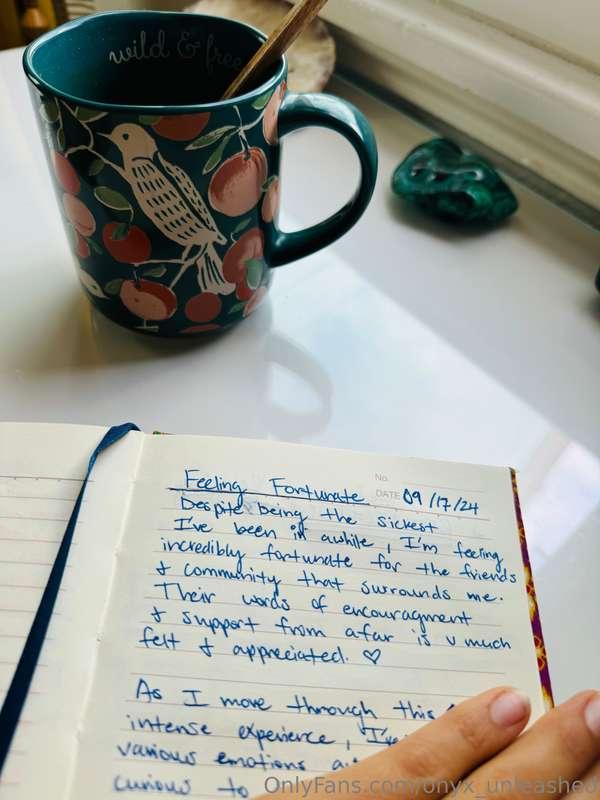 wild & free
No.
DATE 09/17/24
Feeling Fortunate
Despite being the sickest
I've been in awhile, I'm feeling
incredibly fortunate for the friends
& community that surrounds me.
Their words of encouragment
& support from afar is v much
felt & appreciated. ♡
As I move through this
intense experience, I've
various emotions
curious to
OnlyFans.com/onyx_unleashed